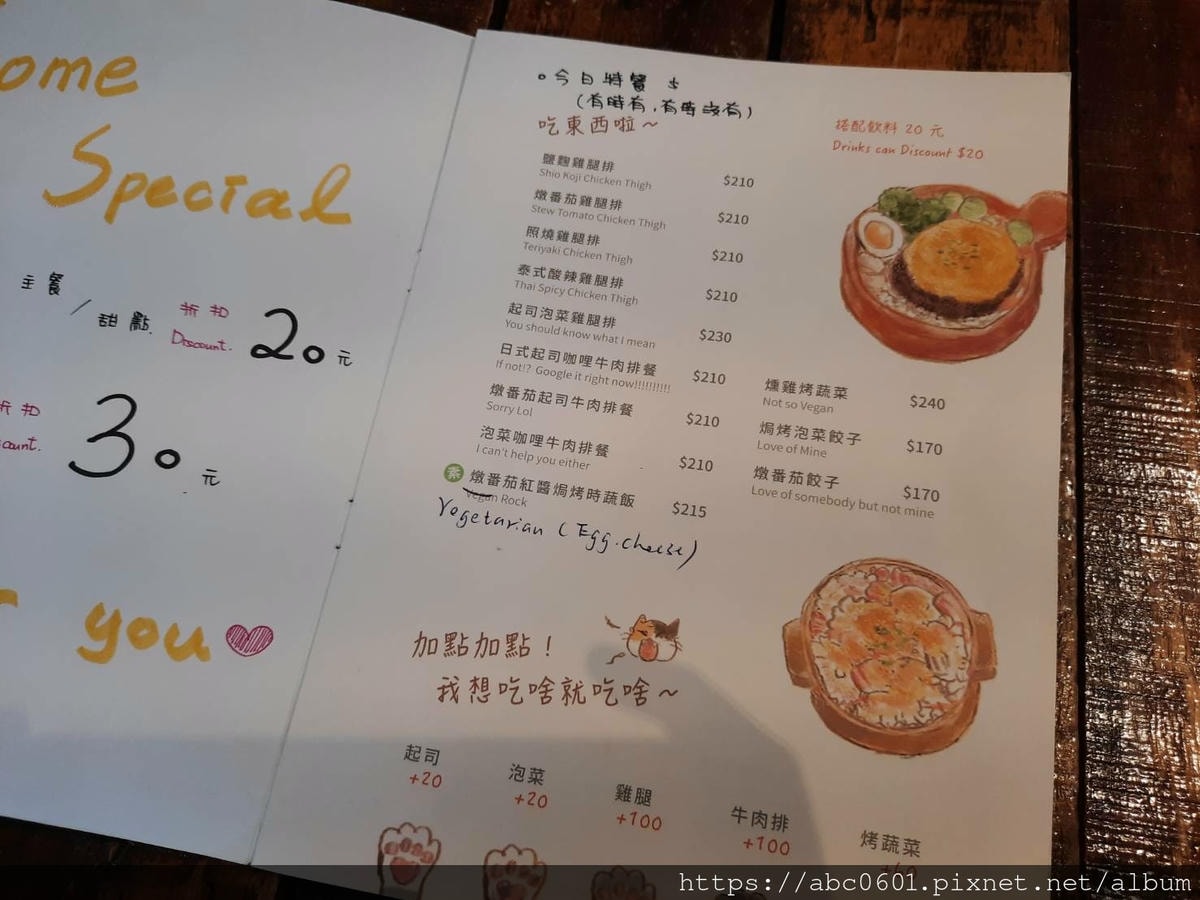 ome
Special
主餐
/
甜點.
折扣
Discount.
20元
折扣
count.
30元
you
今日特餐 $
(有時有,有時沒有)
吃東西啦~
搭配飲料 20 元
Drinks can Discount $20
鹽麴雞腿排 $210
Shio Koji Chicken Thigh
燉番茄雞腿排 $210
Stew Tomato Chicken Thigh
照燒雞腿排 $210
Teriyaki Chicken Thigh
泰式酸辣雞腿排 $210
Thai Spicy Chicken Thigh
起司泡菜雞腿排 $230
You should know what I mean
日式起司咖哩牛肉排餐 $210
If not!? Google it right now!!!!!!!!!!
燉番茄起司牛肉排餐 $210
Sorry Lol
泡菜咖哩牛肉排餐 $210
I can't help you either
素 燉番茄紅醬焗烤時蔬飯 $215
Vegan Rock
Vegetarian (Egg.cheese)
燻雞烤蔬菜 $240
Not so Vegan
焗烤泡菜餃子 $170
Love of Mine
燉番茄餃子 $170
Love of somebody but not mine
加點加點!
我想吃啥就吃啥~
起司
+20
泡菜
+20
雞腿
+100
牛肉排
+100
烤蔬菜
https://abc0601.pixnet.net/album